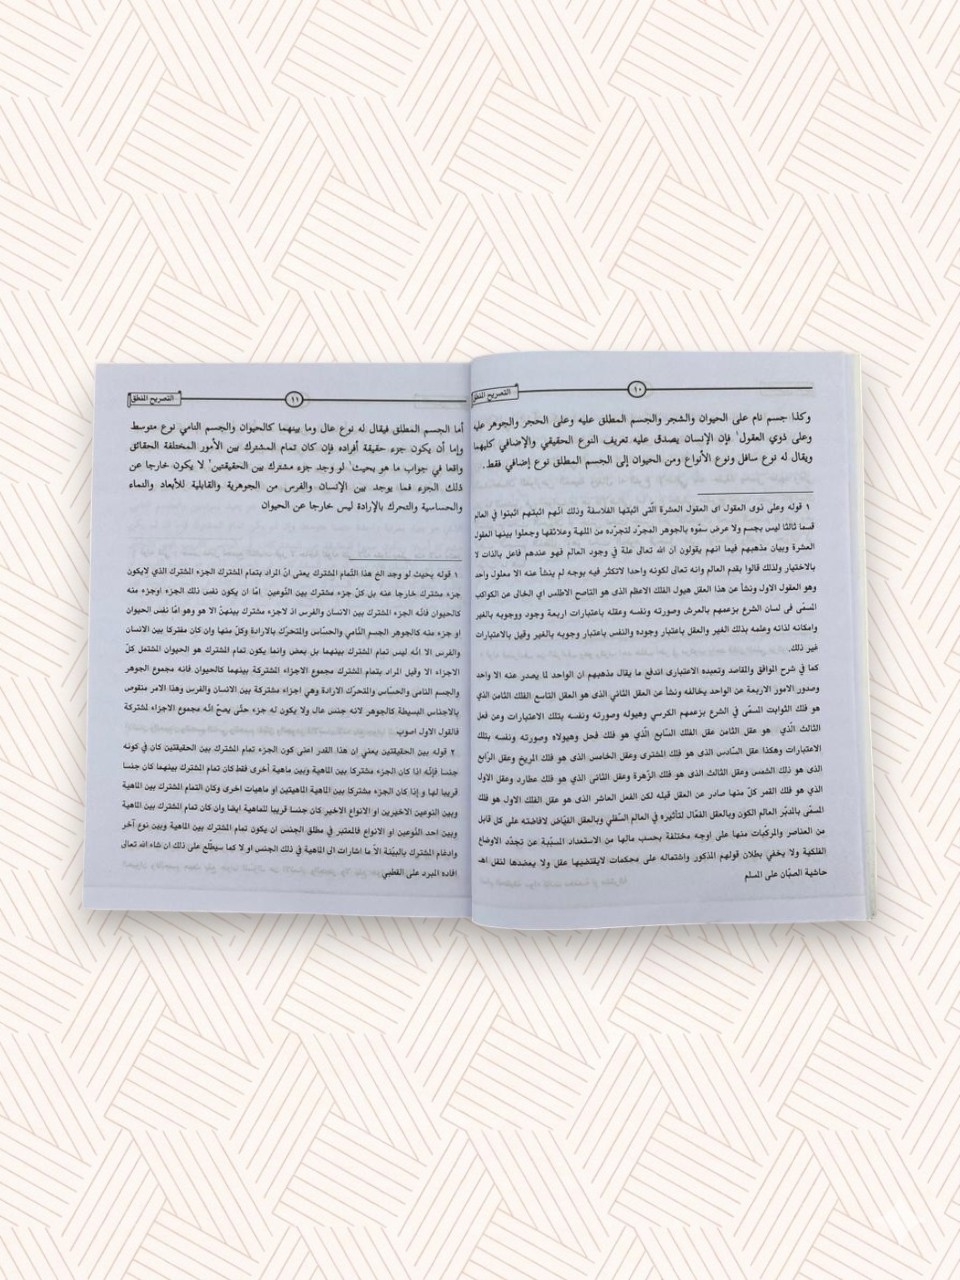 ١٠
التصريح المنطق
وكذا جسم نام على الحيوان والشجر والجسم المطلق عليه وعلى الحجر والجوهر عليه
وعلى ذوي العقول١ فإن الإنسان يصدق عليه تعريف النوع الحقيقي والإضافي كليهما
ويقال له نوع سافل ونوع الأنواع ومن الحيوان إلى الجسم المطلق نوع إضافي فقط.
١ قوله وعلى ذوى العقول اى العقول العشرة الّتى اثبتها الفلاسفة وذلك انّهم اثبتهم اثبتوا في العالم
قسما ثالثا ليس بجسم ولا عرض سمّوه بالجوهر المجرّد لتجرّده عن الملهية وعلائقها وجعلوا بينها العقول
العشرة وبيان مذهبهم فيما انهم يقولون ان الله تعالى علة في وجود العالم فهو عندهم فاعل بالذات لا
بالاختيار ولذلك قالوا بقدم العالم وانه تعالى لكونه واحدا لاتكثر فيه بوجه لم ينشأ عنه الا معلول واحد
وهو العقول الاول ونشأ عن هذا العقل هيول الفلك الاعظم الذى هو التاصح الاطلس اي الخالى عن الكواكب
المسمّى فى لسان الشرع بزعمهم بالعرش وصورته ونفسه وعقله باعتبارات اربعة وجود ووجوبه بالغير
وامكانه لذاته وعلمه بذلك الغير والعقل باعتبار وجوده والنفس باعتبار وجوبه بالغير وقيل بالاعتبارات
غير ذلك.
كما في شرح الموافق والمقاصد وتعبده الاعتبارى اندفع ما يقال مذهبهم ان الواحد لا يصدر عنه الا واحد
وصدور الامور الاربعة عن الواحد يخالفه ونشأ عن العقل الثاني الذى هو العقل التاسع الفلك الثامن الذي
هو فلك الثوابت المسمّى في الشرع بزعمهم الكرسي وهيوله وصورته ونفسه بتلك الاعتبارات ومن فعل
الثالث الّذي هو عقل الثامن عقل الفلك السّابع الّذي هو فلك فحل وهيولاه وصورته ونفسه بتلك
الاعتبارات وهكذا عقل السّادس الذى هو فلك المشترى وعقل الخامس الذى هو فلك المريخ وعقل الرّابع
الذى هو ذلك الشمس وعقل الثالث الذى هو فلك الزّهرة وعقل الثاني الذي هو فلك عطارد وعقل الاول
الذي هو فلك القمر كلّ منها صادر عن العقل قبله لكن الفعل العاشر الذى هو عقل الفلك الاول هو فلك
المسمّى بالمدبّر العالم الكون وبالعقل الفعّال لتأثيره في العالم السّفلي وبالعقل الفيّاض لافاضته على كل قابل
من العناصر والمركّبات منها على اوجه مختلفة بحسب مالها من الاستعداد المسبّبة عن تجدّد الاوضاع
الفلكية ولا يخفىٰ بطلان قولهم المذكور واشتماله على محكمات لايقتضيها عقل ولا يعضدها لنقل اهـ
حاشية الصبّان على المسلم
١١
التصريح المنطق
أما الجسم المطلق فيقال له نوع عال وما بينهما كالحيوان والجسم النامي نوع متوسط
وإما أن يكون جزء حقيقة أفراده فإن كان تمام المشترك بين الأمور المختلفة الحقائق
واقعا في جواب ما هو بحيث١ لو وجد جزء مشترك بين الحقيقتين٢ لا يكون خارجا عن
ذلك الجزء فما يوجد بين الإنسان والفرس من الجوهرية والقابلية للأبعاد والنماء
والحساسية والتحرك بالإرادة ليس خارجا عن الحيوان
١ قوله بحيث لو وجد الخ هذا التّمام المشترك يعنى انّ المراد بتمام المشترك الجزء المشترك الذي لايكون
جزء مشترك خارجا عنه بل كلّ جزء مشترك بين النّوعين. امّا ان يكون نفس ذلك الجزء اوجزء منه
كالحيوان فانّه الجزء المشترك بين الانسان والفرس اذ لاجزء مشترك بينهمنّ الا هو وهو امّا نفس الحيوان
او جزء منه كالجوهر الجسم النّامي والحسّاس والمتحرّك بالارادة وكلّ منها وان كان مفتركا بين الانسان
والفرس الا انّه ليس تمام المشترك بينهما بل بعض وانما يكون تمام المشترك هو الحيوان المشتمل كلّ
الاجزاء الا وقيل المراد بتمام المشترك مجموع الاجزاء المشتركة بينهما كالحيوان فانه مجموع الجوهر
والجسم النامى والحسّاس والمتحرّك الارادة وهي اجزاء مشتركة بين الانسان والفرس وهذا الامر منقوص
بالاجناس البسيطة كالجوهر لانه جنس عال ولا يكون له جزء حتّى يصحّ انّه مجموع الاجزاء لشتركة
فالقول الاول اصوب
٢ قوله. بين الحقيقتين يعني إن هذا القدر اعنى كون الجزء تمام المشترك بين الحقيقتين كان في كونه
جنسا فإنّه اذا كان الجزء مشتركا بين الماهية وبين ماهية أخرى فقط كان تمام المشترك بينهما كان جنسا
قريبا لها و إذا كان الجزء مشتركا بين الماهية الماهيتين او ماهيات اخرى وكان التمام المشترك بين الماهية
وبين النوعين الاخيرين او الانواع الاخير كان جنسا قريبا للماهية ايضا وان كان تمام المشترك بين الماهية
وبين احد النّوعين او الانواع فالمعتبر في مطلق الجنس ان يكون تمام المشترك بين الماهية وبين نوع آخر
وادغام المشترك بالبيّنة الاّ ما اشارات الى الماهية في ذلك الجنس او لا كما سيطّلع على ذلك ان شاء الله تعالى
افاده المبرد على القطبي